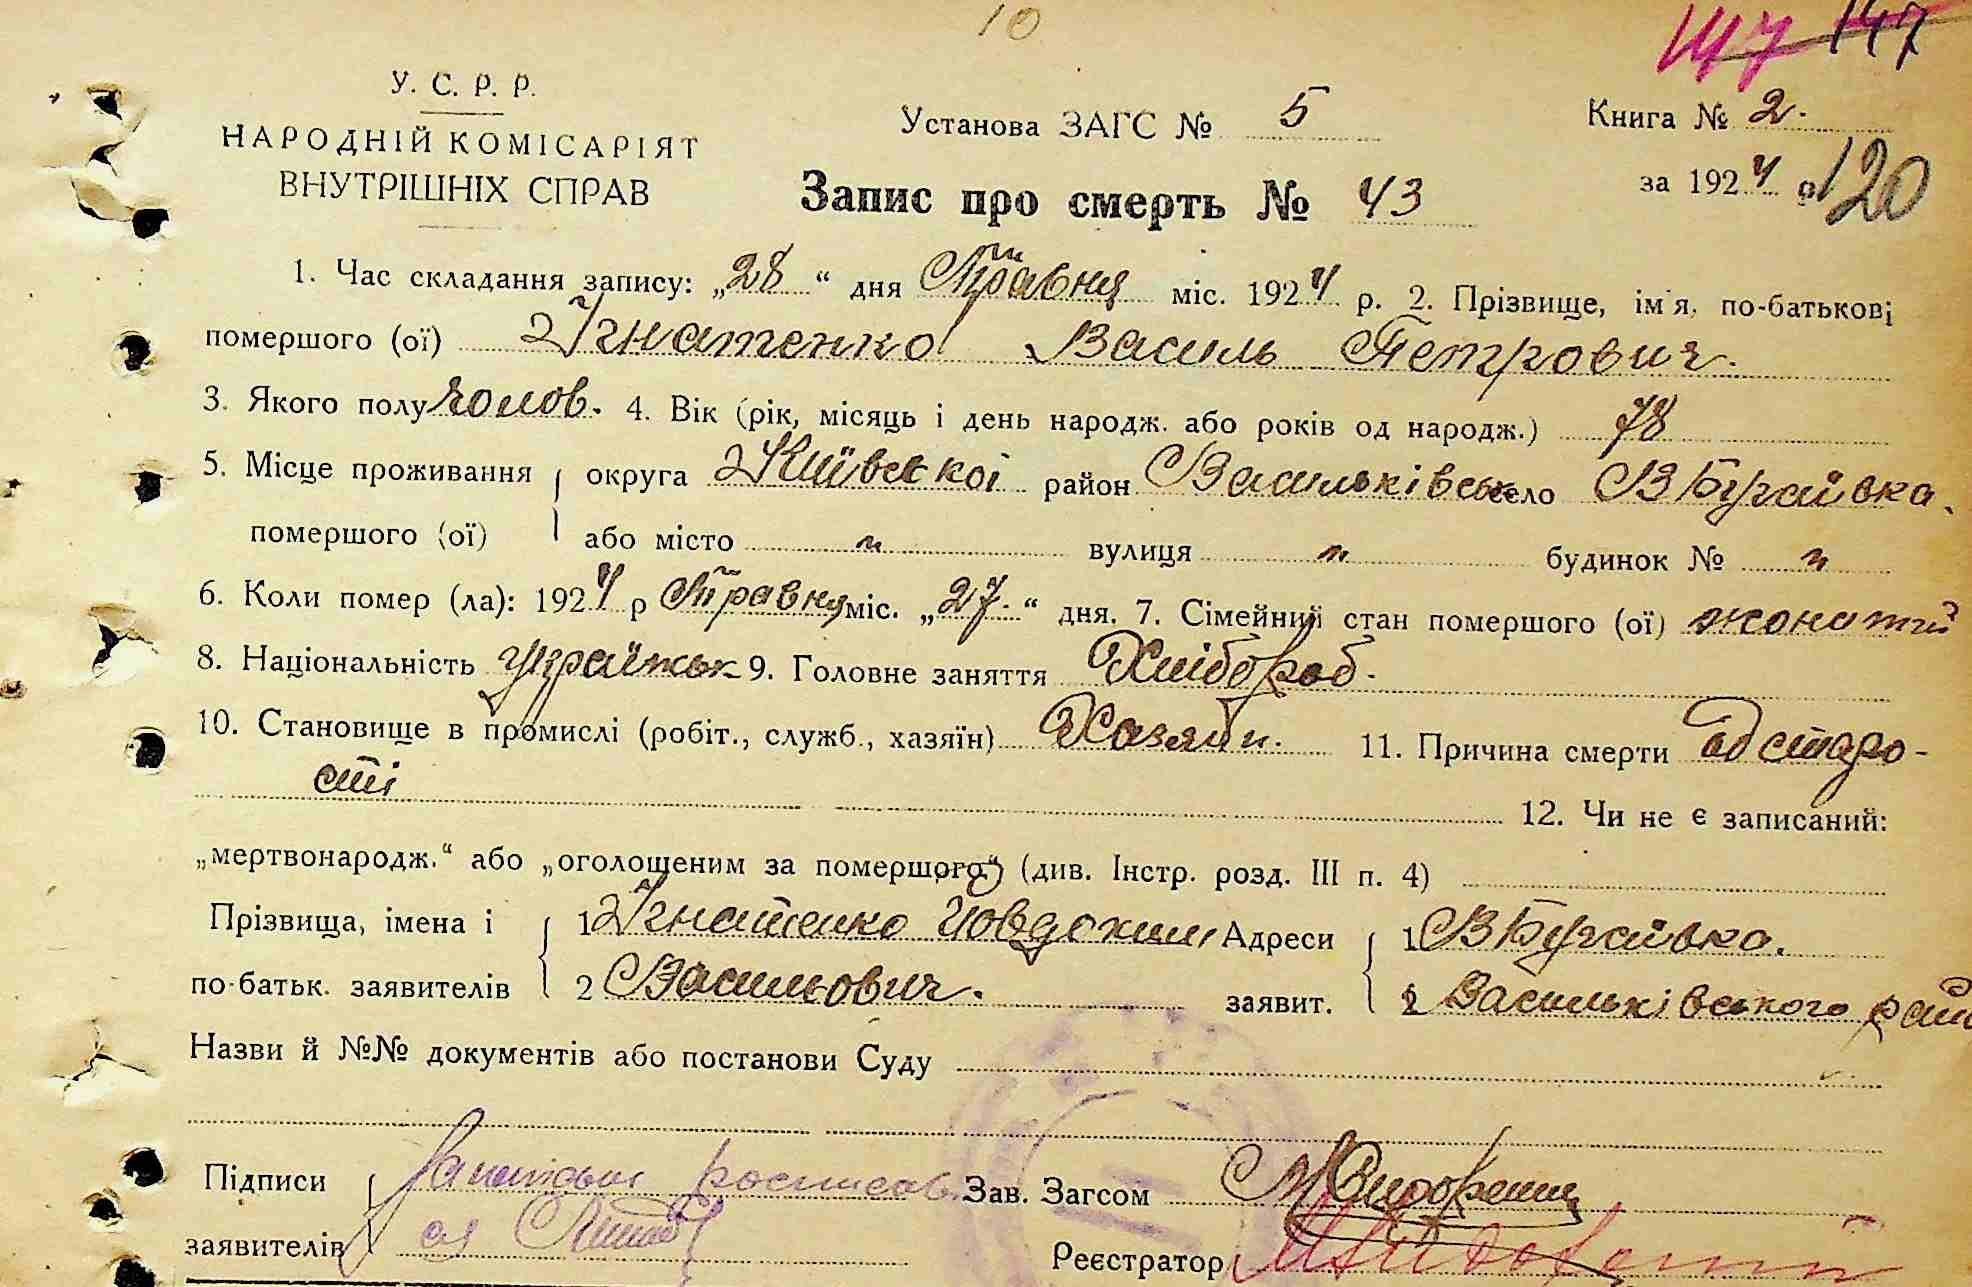 10
147 147
У. С. Р. Р.
НАРОДНІЙ КОМІСАРІЯТ
ВНУТРІШНІХ СПРАВ
Установа ЗАГС № 5
Книга № 2.
за 1924 р. 120
Запис про смерть № 43
1. Час складання запису: „28“ дня Травня міс. 1924 р. 2. Прізвище, ім'я, по-батькові
помершого (ої) Ігнатенко Василь Петрович.
3. Якого полу чолов. 4. Вік (рік, місяць і день народж. або років од народж.) 78
5. Місце проживання округа Київської район Васильківськ село В Бугаївка.
помершого (ої) або місто " вулиця " будинок № "
6. Коли помер (ла): 1924 р Травня міс. „27.“ дня. 7. Сімейний стан помершого (ої) жонатий
8. Національність українськ 9. Головне заняття Хлібороб.
10. Становище в промислі (робіт., служб., хазяїн) Хазяїн. 11. Причина смерти од старо-
сті
12. Чи не є записаний:
„мертвонародж.“ або „оголошеним за померщого“) (див. Інстр. розд. III п. 4)
Прізвища, імена і 1 Ігнатенко Йовдоким Адреси 1 В Бугаївка.
по-батьк. заявителів 2 Васильович. заявит. 2 Васильківського рай
Назви й №№ документів або постанови Суду
Підписи росписав Зав. Загсом
заявителів ся Реєстратор